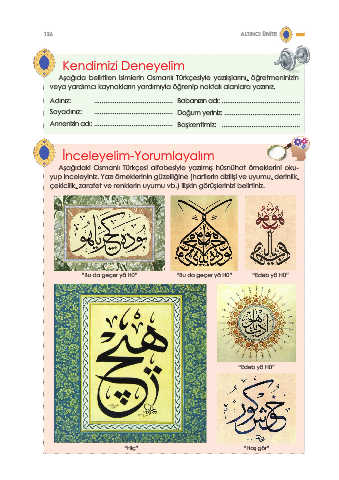 136
ALTINCI ÜNİTE
Kendimizi Deneyelim
Aşağıda belirtilen isimlerin Osmanlı Türkçesiyle yazılışlarını, öğretmeninizin
veya yardımcı kaynakların yardımıyla öğrenip noktalı alanlara yazınız.
Adınız: ........................................ Babanızın adı: ........................................
Soyadınız: ........................................ Doğum yeriniz: ........................................
Annenizin adı: ........................................ Başkentimiz: ........................................
İnceleyelim-Yorumlayalım
Aşağıdaki Osmanlı Türkçesi alfabesiyle yazılmış hüsnühat örneklerini oku-
yup inceleyiniz. Yazı örneklerinin güzelliğine (harflerin dizilişi ve uyumu, derinlik,
çekicilik, zarafet ve renklerin uyumu vb.) ilişkin görüşlerinizi belirtiniz.
بو ده گچر يا هو
"Bu da geçer yâ Hû"
"Bu da geçer yâ Hû"
"Edeb yâ Hû"
"Edeb yâ Hû"
هيچ
"Hiç"
خوش گور
"Hoş gör"